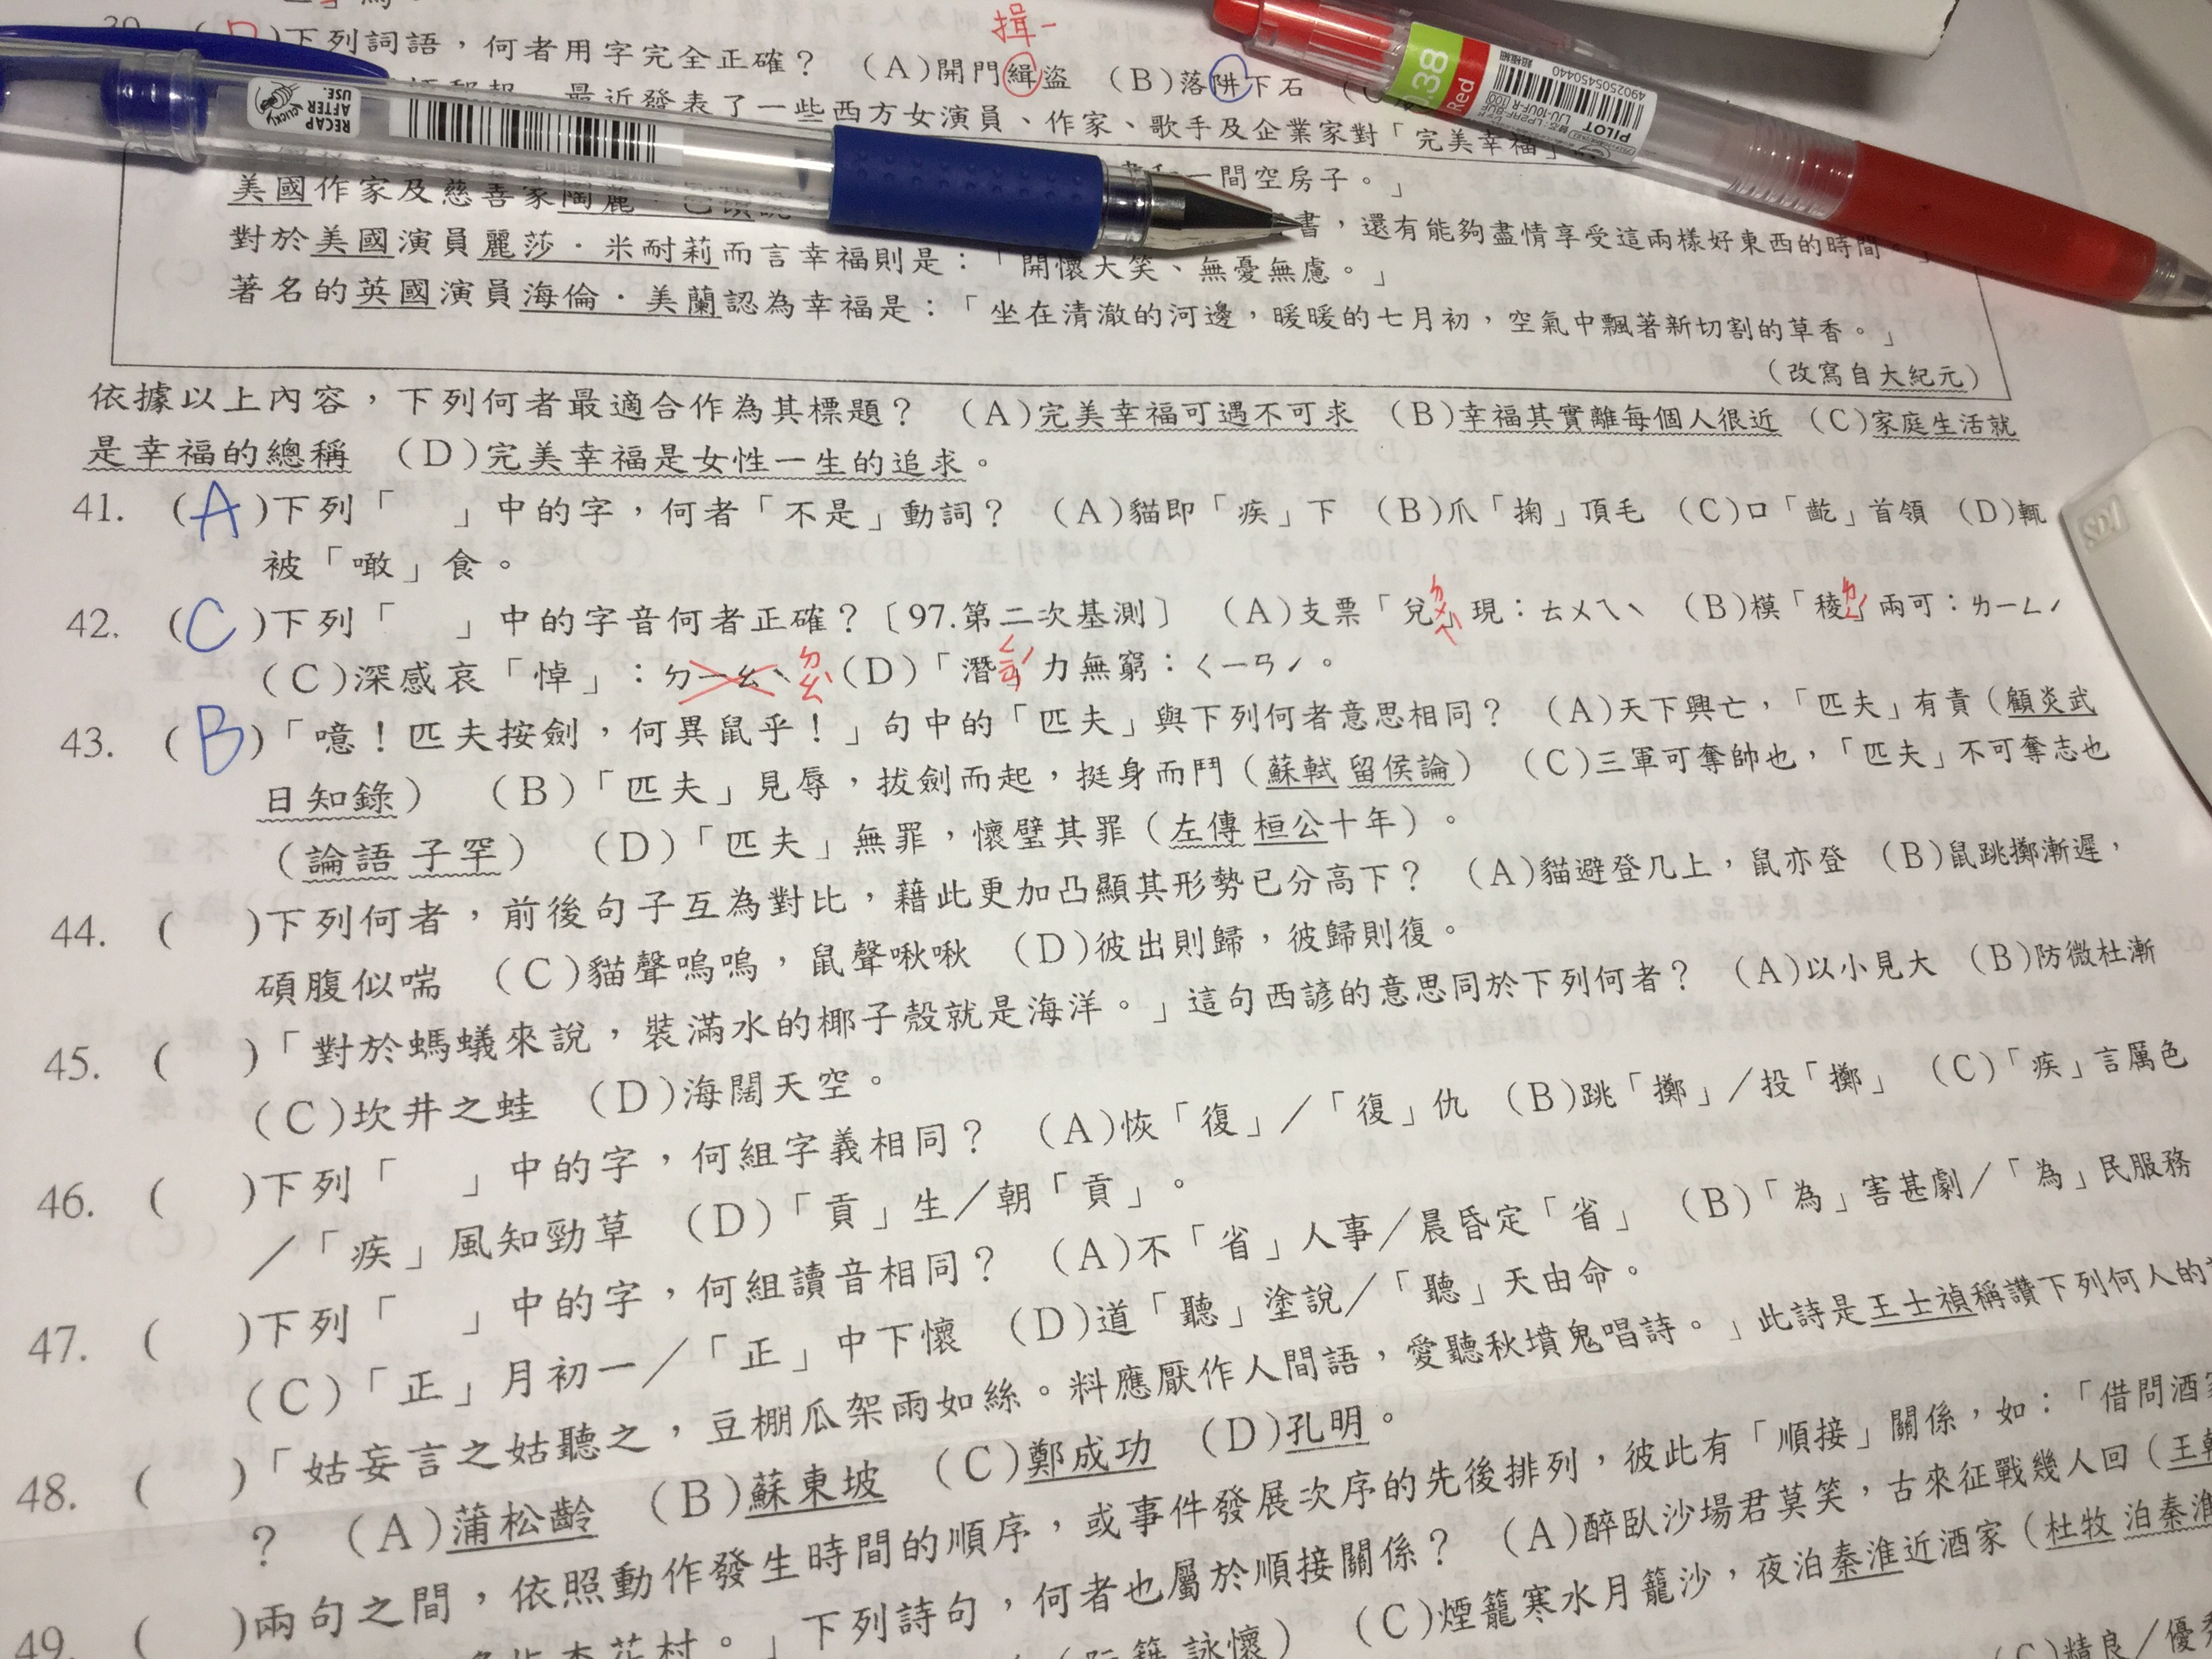 揖-
)下列詞語，何者用字完全正確？ (A)開門緝盜 (B)落阱下石
最近發表了一些西方女演員、作家、歌手及企業家對「完美幸福」
一間空房子。」
美國作家及慈善家陶麗．
書，還有能夠盡情享受這兩樣好東西的時間。」
對於美國演員麗莎．米耐莉而言幸福則是：「開懷大笑、無憂無慮。」
著名的英國演員海倫．美蘭認為幸福是：「坐在清澈的河邊，暖暖的七月初，空氣中飄著新切割的草香。」
(改寫自大紀元)
依據以上內容，下列何者最適合作為其標題？ (A)完美幸福可遇不可求 (B)幸福其實離每個人很近 (C)家庭生活就
是幸福的總稱 (D)完美幸福是女性一生的追求。
41. (A)下列「 」中的字，何者「不是」動詞？ (A)貓即「疾」下 (B)爪「掬」頂毛 (C)口「齕」首領 (D)輒
被「噉」食。
42. (C)下列「 」中的字音何者正確？〔97.第二次基測〕 (A)支票「兌」現：ㄊㄨㄟˋ (B)模「稜」兩可：ㄌㄧㄥˊ
(C)深感哀「悼」：ㄉㄧㄠˋ ㄉㄠˋ (D)「潛」力無窮：ㄑㄧㄢˊ。
43. (B)「噫！匹夫按劍，何異鼠乎！」句中的「匹夫」與下列何者意思相同？ (A)天下興亡，「匹夫」有責(顧炎武
日知錄) (B)「匹夫」見辱，拔劍而起，挺身而鬥(蘇軾 留侯論) (C)三軍可奪帥也，「匹夫」不可奪志也
(論語 子罕) (D)「匹夫」無罪，懷璧其罪(左傳 桓公十年)。
44. ( )下列何者，前後句子互為對比，藉此更加凸顯其形勢已分高下？ (A)貓避登几上，鼠亦登 (B)鼠跳擲漸遲，
碩腹似喘 (C)貓聲嗚嗚，鼠聲啾啾 (D)彼出則歸，彼歸則復。
45. ( )「對於螞蟻來說，裝滿水的椰子殼就是海洋。」這句西諺的意思同於下列何者？ (A)以小見大 (B)防微杜漸
(C)坎井之蛙 (D)海闊天空。
46. ( )下列「 」中的字，何組字義相同？ (A)恢「復」／「復」仇 (B)跳「擲」／投「擲」 (C)「疾」言厲色
／「疾」風知勁草 (D)「貢」生／朝「貢」。
47. ( )下列「 」中的字，何組讀音相同？ (A)不「省」人事／晨昏定「省」 (B)「為」害甚劇／「為」民服務
(C)「正」月初一／「正」中下懷 (D)道「聽」塗說／「聽」天由命。
48. ( )「姑妄言之姑聽之，豆棚瓜架雨如絲。料應厭作人間語，愛聽秋墳鬼唱詩。」此詩是王士禎稱讚下列何人的
？ (A)蒲松齡 (B)蘇東坡 (C)鄭成功 (D)孔明。
49. ( )兩句之間，依照動作發生時間的順序，或事件發展次序的先後排列，彼此有「順接」關係，如：「借問酒
杏花村。」下列詩句，何者也屬於順接關係？ (A)醉臥沙場君莫笑，古來征戰幾人回(王
詠懷) (C)煙籠寒水月籠沙，夜泊秦淮近酒家(杜牧 泊秦淮
(C)精良／優
RECAP AFTER USE.
CLICKY
0.38
Red
4902505450440
PILOT
LJU-10UF-R
SDI